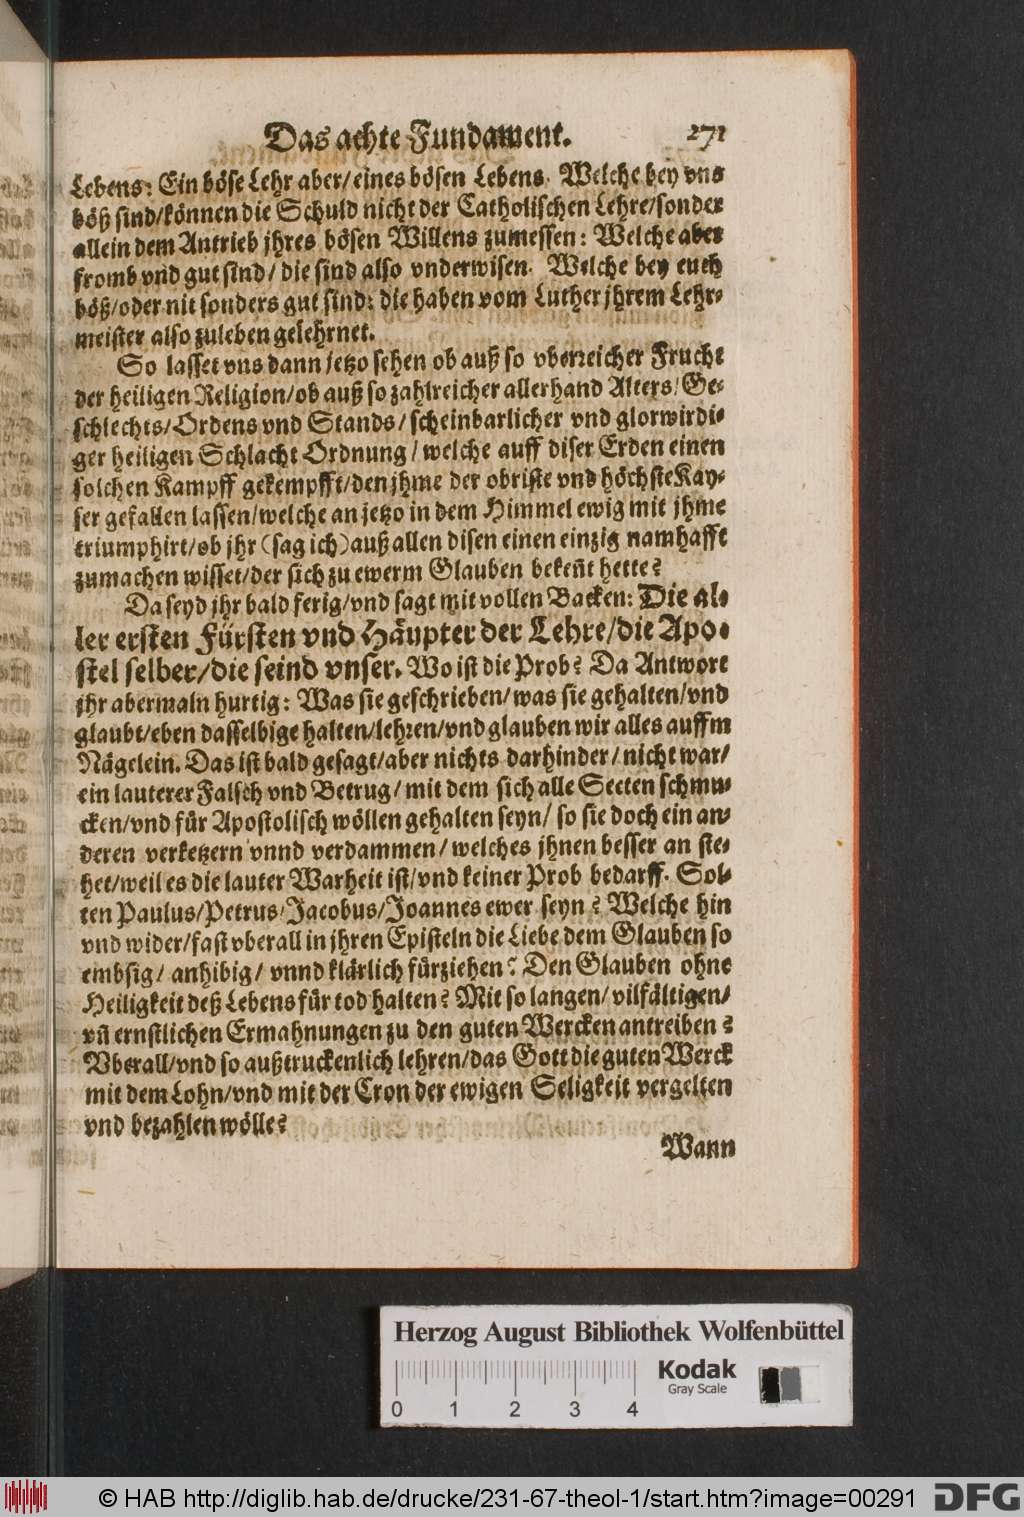 Das achte Fundament. 271
Lebens: Ein böse Lehr aber/eines bösen Lebens. Welche bey vns
böß sind/können die Schuld nicht der Catholischen Lehre/sonder
allein dem Antrieb jhres bösen Willens zumessen: Welche aber
fromb vnd gut sind/ die sind also vnderwisen. Welche bey euch
böß/oder nit sonders gut sind: die haben vom Luther jhrem Lehr-
meister also zuleben gelehrnet.
So lasset vns dann jetzo sehen ob auß so vberreicher Frucht
der heiligen Religion/ob auß so zahlreicher allerhand Alters/Ge-
schlechts/Ordens vnd Stands/ scheinbarlicher vnd glorwirdi-
ger heiligen Schlacht Ordnung/ welche auff diser Erden einen
solchen Kampff gekempfft/den jhme der obriste vnd höchste Kay-
ser gefallen lassen/welche an jetzo in dem Himmel ewig mit jhme
triumphirt/ob jhr (sag ich) auß allen disen einen einzig namhafft
zumachen wisset/der sich zu ewerm Glauben bekeñt hette?
Da seyd jhr bald ferig/vnd sagt mit vollen Backen: Die al-
ler ersten Fürsten vnd Häupter der Lehre/die Apo-
stel selber/die seind vnser. Wo ist die Prob? Da Antwort
jhr abermaln hurtig: Was sie geschrieben/was sie gehalten/vnd
glaubt/eben dasselbige halten/lehren/vnd glauben wir alles auffm
Nägelein. Das ist bald gesagt/aber nichts darhinder/ nicht war/
ein lauterer Falsch vnd Betrug/ mit dem sich alle Secten schmu-
cken/vnd für Apostolisch wöllen gehalten seyn/ so sie doch ein an-
deren verketzern vnnd verdammen/ welches jhnen besser an ste-
het/weil es die lauter Warheit ist/vnd keiner Prob bedarff. Sol-
ten Paulus/Petrus/Jacobus/Joannes ewer seyn? Welche hin
vnd wider/fast vberall in jhren Episteln die Liebe dem Glauben so
embsig/ anhibig/ vnnd klärlich fürziehen? Den Glauben ohne
Heiligkeit deß Lebens für tod halten? Mit so langen/ vilfältigen/
vñ ernstlichen Ermahnungen zu den guten Wercken antreiben?
Vberall/vnd so außtruckenlich lehren/das Gott die guten Werck
mit dem Lohn/vnd mit der Cron der ewigen Seligkeit vergelten
vnd bezahlen wölle?
Wann
Herzog August Bibliothek Wolfenbüttel
Kodak
Gray Scale
0 1 2 3 4
© HAB http://diglib.hab.de/drucke/231-67-theol-1/start.htm?image=00291 DFG